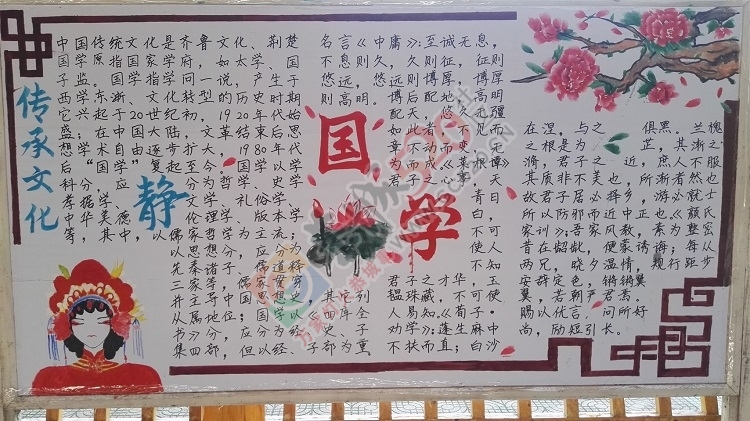 传承文化
静
国
学
中国传统文化是齐鲁文化、荆楚
国学原指国家学府,如太学、国
子监。国学指学问一说,产生于
西学东渐、文化转型的历史时期
它兴起于20世纪初,1920年代始
盛;在中国大陆,文革结束后思
想学术自由逐步扩大,1980年代
后“国学”复起至今。国学以学
科分,应 分为哲学、史学
考据学、 文学、礼俗学、
中华美德 伦理学、版本学
等,其中,以儒家哲学为主流;
以思想分,应分为
先秦诸子、儒道释
三家等,儒家贯穿
并主导中国思想史,其它列
从属地位;国学以《四库全
书》分,应分为经、史、子
集四部,但以经、子部为重
名言《中庸》:至诚无息,
不息则久,久则征,征则
悠远,悠远则博厚,博厚
则高明。博厚配地,高明
配天,悠久无疆
如此者,不见而
章,不动而变,无
为而成。《菜根谭》
君子之心事,天
青日
白,
不可
使人
不知
君子之才华,玉
韫珠藏,不可使
人易知。《荀子·
劝学》:蓬生麻中
不扶而直;白沙
在涅,与之 俱黑。兰槐
之根是为 芷,其渐之
滫,君子之 近,庶人不服
其质非不美也,所渐者然也
故君子居必择乡,游必就士
所以防邪而近中正也。《颜氏
家训》:吾家风教,素为整密
昔在龆龀,便蒙诱诲;每从
两兄,晓夕温凊,规行矩步
安辞定色,锵锵翼
翼,若朝严君焉。
赐以优言,问所好
尚,励短引长。